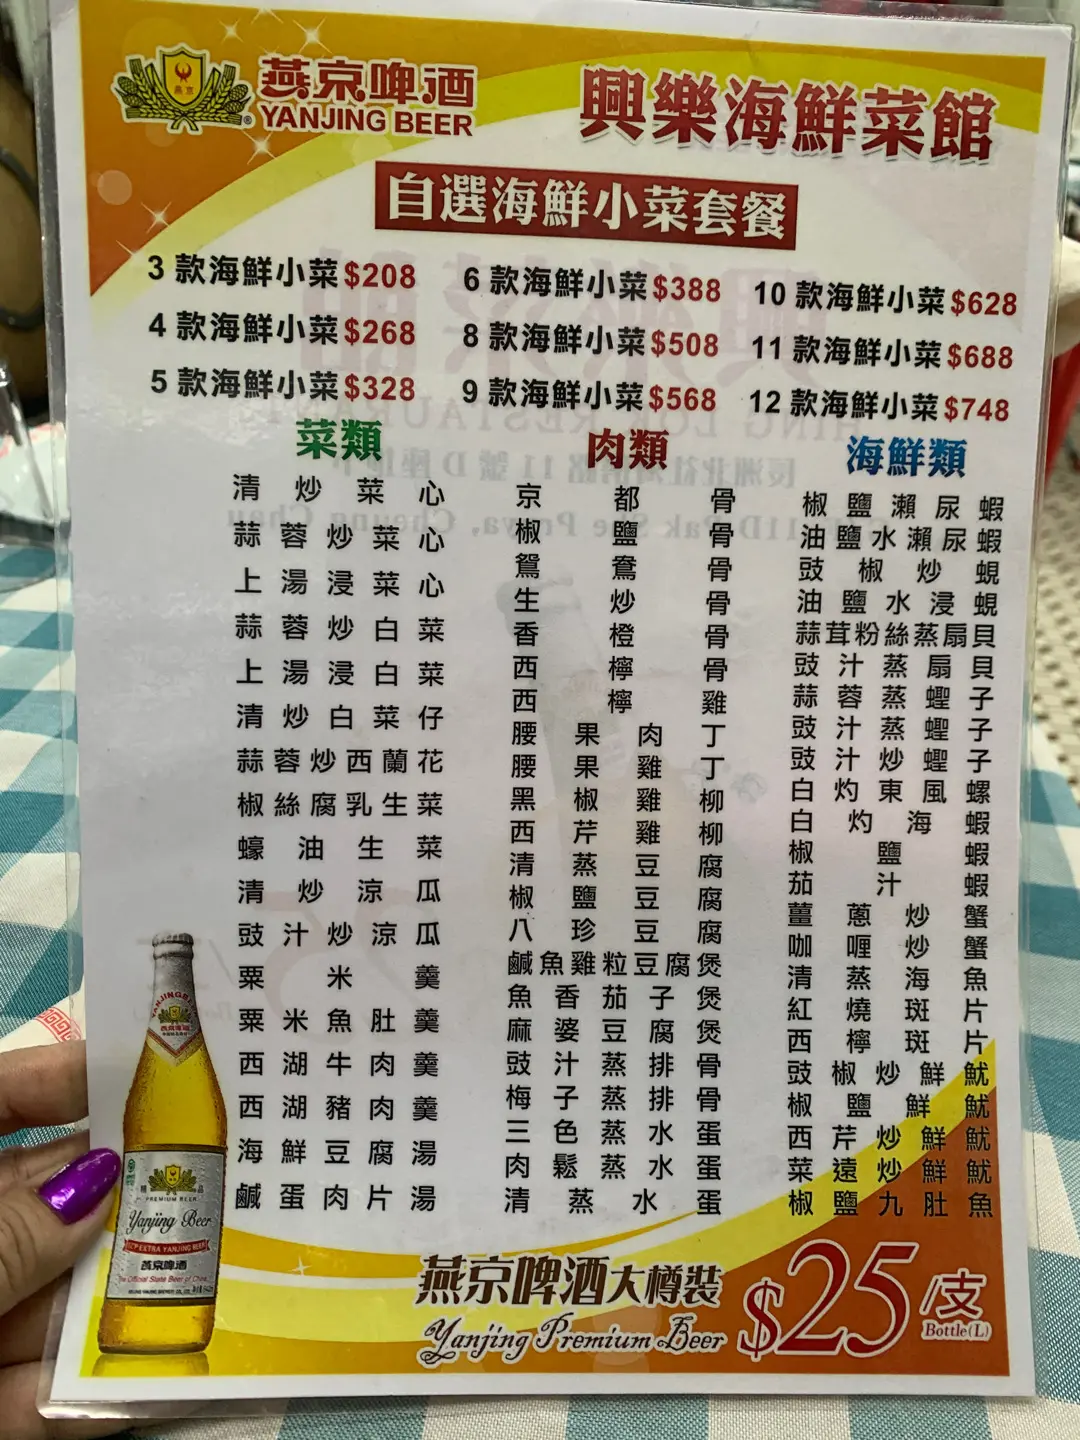 燕京啤酒
YANJING BEER
興樂海鮮菜館
自選海鮮小菜套餐
3 款海鮮小菜$208
4 款海鮮小菜$268
5 款海鮮小菜$328
6 款海鮮小菜$388
8 款海鮮小菜$508
9 款海鮮小菜$568
10 款海鮮小菜$628
11 款海鮮小菜$688
12 款海鮮小菜$748
菜類
清炒菜心
蒜蓉炒菜心
上湯浸菜心
蒜蓉炒白菜
上湯浸白菜
清炒白菜仔
蒜蓉炒西蘭花
椒絲腐乳生菜
蠔油生菜
清炒涼瓜
豉汁炒涼瓜
粟米羹
粟米魚肚羹
西湖牛肉羹
西湖豬肉羹
海鮮豆腐湯
鹹蛋肉片湯
肉類
京都骨
椒鹽骨
鴛鴦骨
生炒骨
香橙骨
西檸骨
西檸雞
腰果肉丁
腰果雞丁
黑椒雞柳
西芹雞柳
清蒸豆腐
椒鹽豆腐
八珍豆腐
鹹魚雞粒豆腐煲
魚香茄子煲
麻婆豆腐煲
豉汁蒸排骨
梅子蒸排骨
三色蒸水蛋
肉鬆蒸水蛋
清蒸水蛋
海鮮類
椒鹽瀨尿蝦
油鹽水瀨尿蝦
豉椒炒蜆
油鹽水浸蜆
蒜茸粉絲蒸扇貝
豉汁蒸扇貝
蒜蓉蒸蟶子
豉汁蒸蟶子
豉汁炒蟶子
白灼東風螺
白灼海蝦
椒鹽蝦
茄汁蝦
薑蔥炒蟹
咖喱炒蟹
清蒸海魚
紅燒斑片
西檸斑片
豉椒炒鮮魷
椒鹽鮮魷
西芹炒鮮魷
菜遠炒鮮魷
椒鹽九肚魚
PREMIUM BEER
Yanjing Beer
燕京啤酒
The Official State Beer of China
燕京啤酒大樽裝
Yanjing Premium Beer
$25/支
Bottle(L)